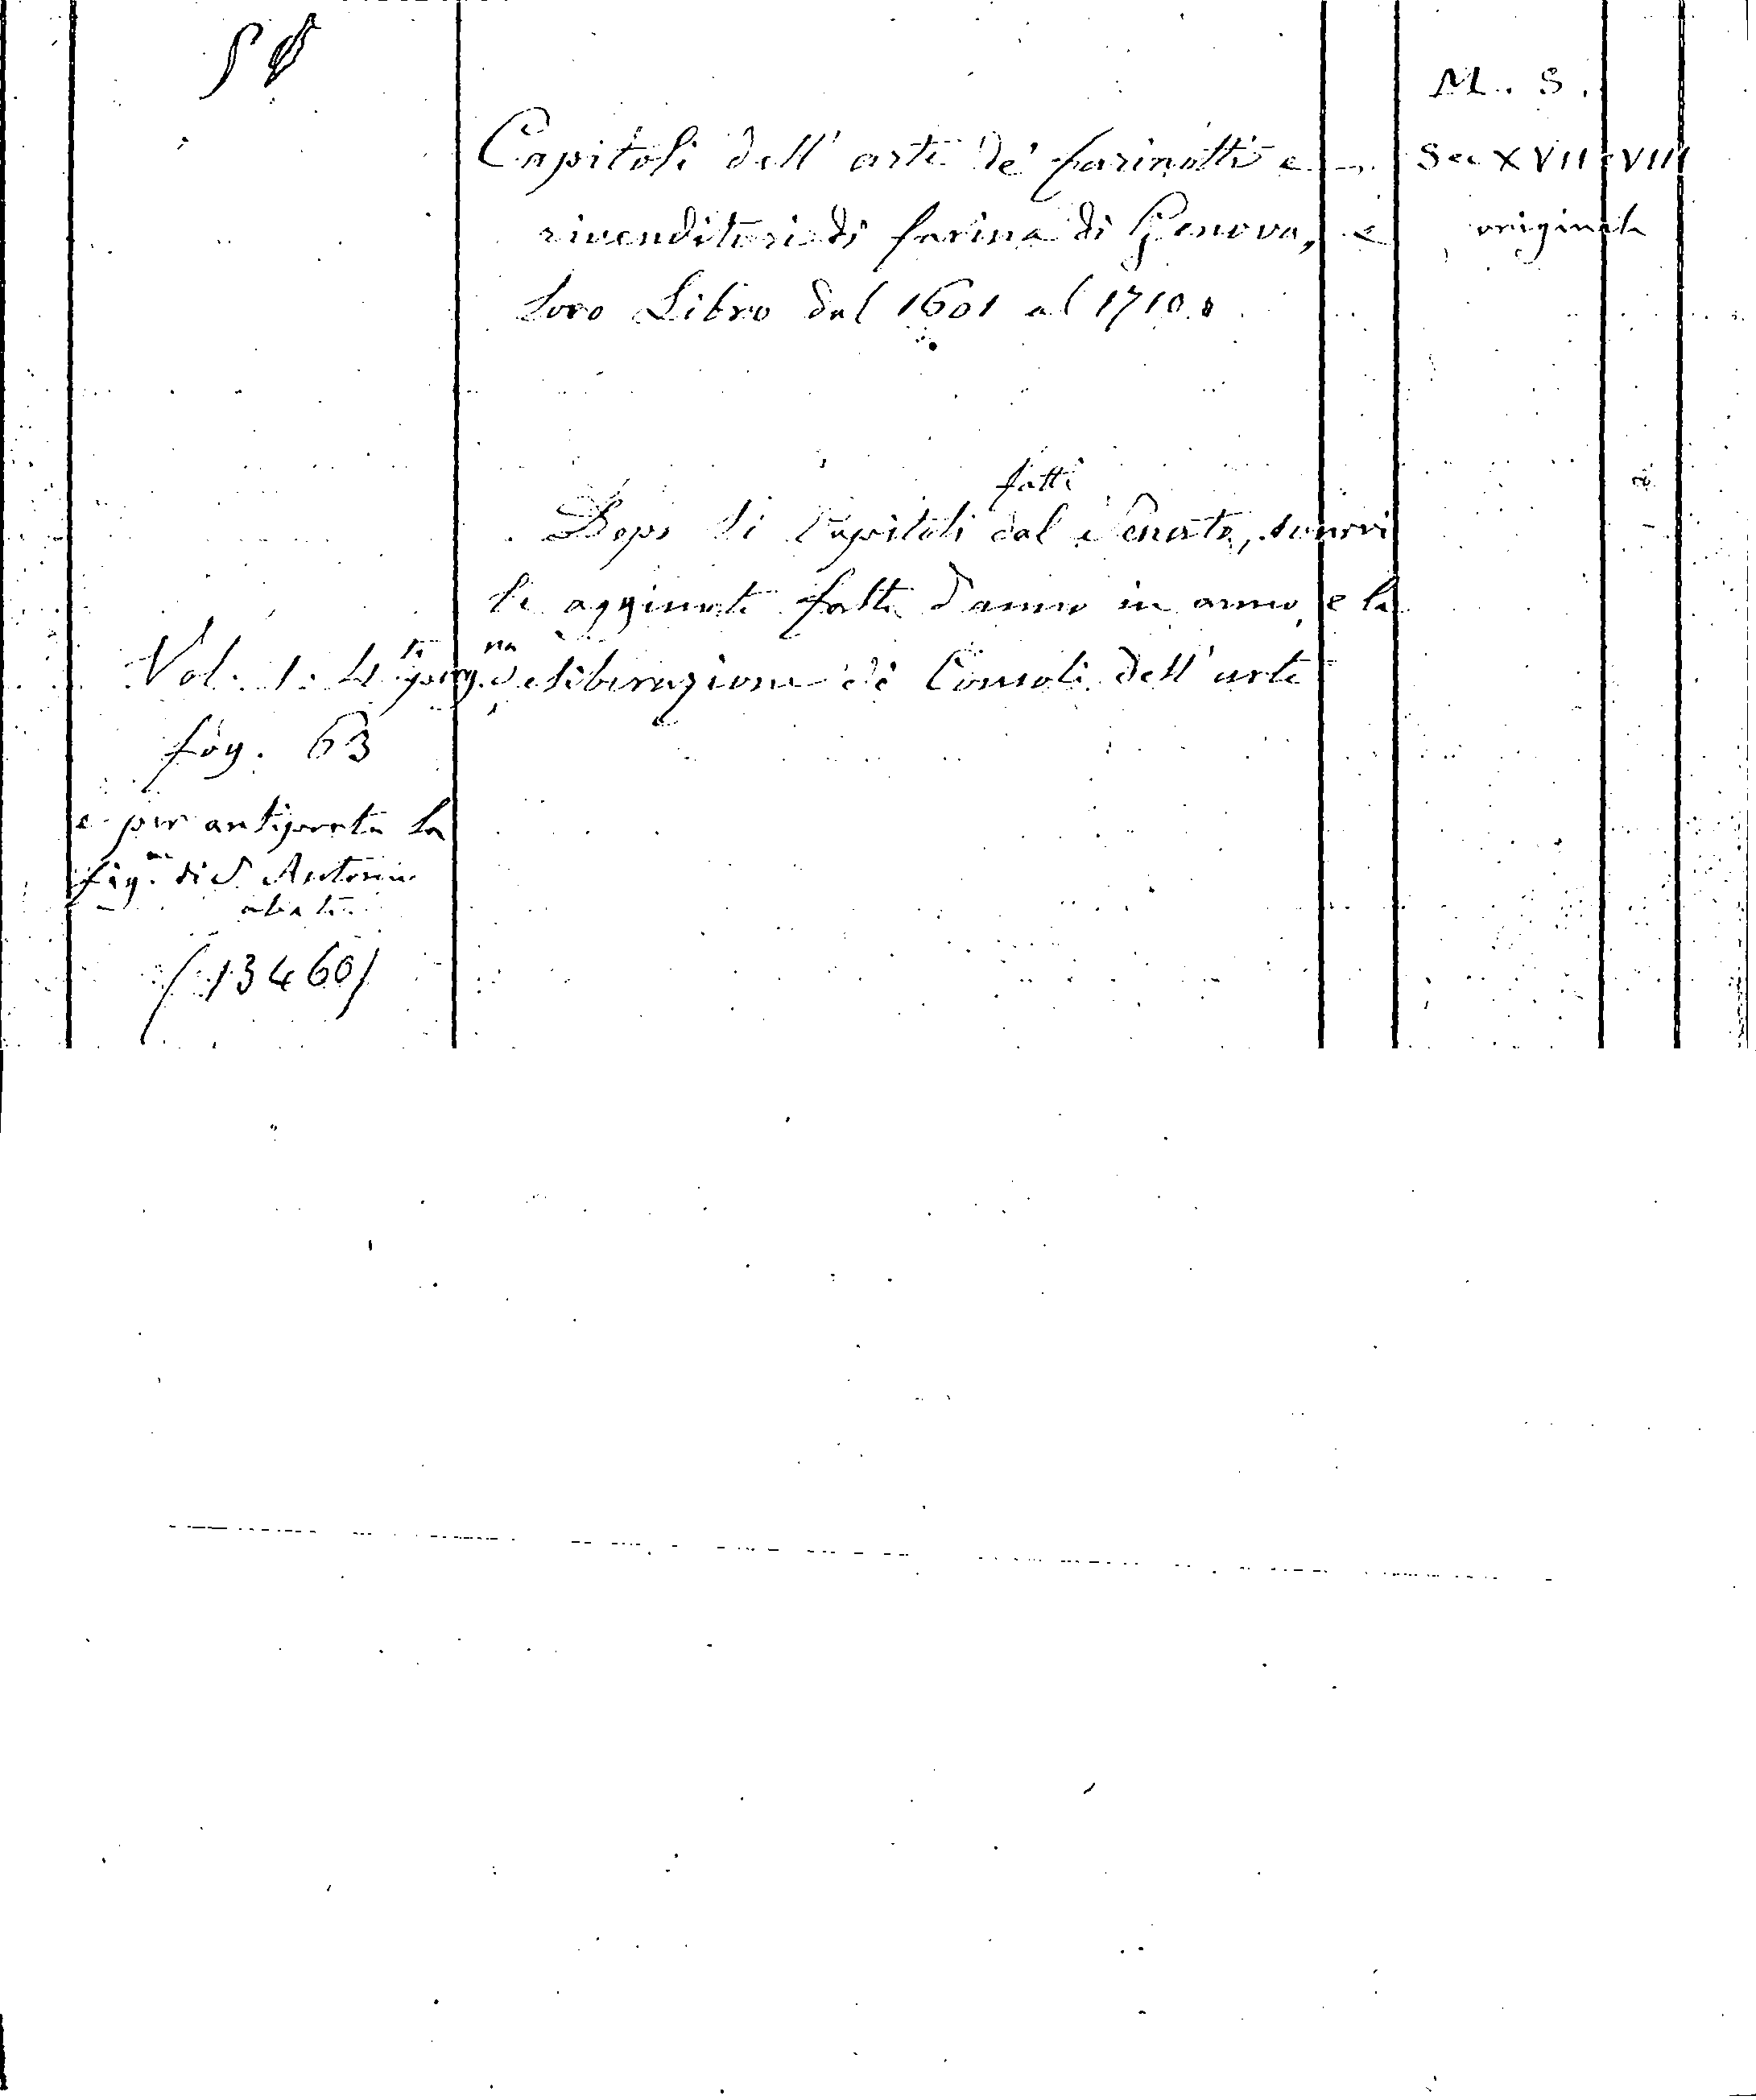 M. S.
Capitoli dell' arte de' farinotti e
Sec XVII e VIII
rivenditori di farina di Genova, e
originale
loro Libro dal 1601 al 1710.
fatti
Dopo li Capitoli dal Senato, sonovi
le aggiunte fatte d'anno in anno, e le
deliberazioni de' Consoli dell' arte
Vol. 1. 4.to perg.na
fog. 63
e per antiporta la
fig.a di S. Antonio
abate.
(13460)